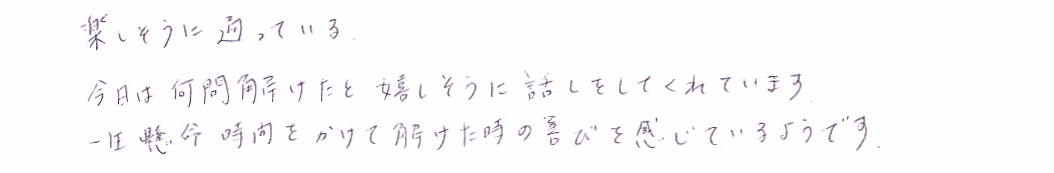 楽しそうに通っている.
今日は何問解けたと嬉しそうに話しをしてくれています.
一生懸命時間をかけて解けた時の喜びを感じているようです.